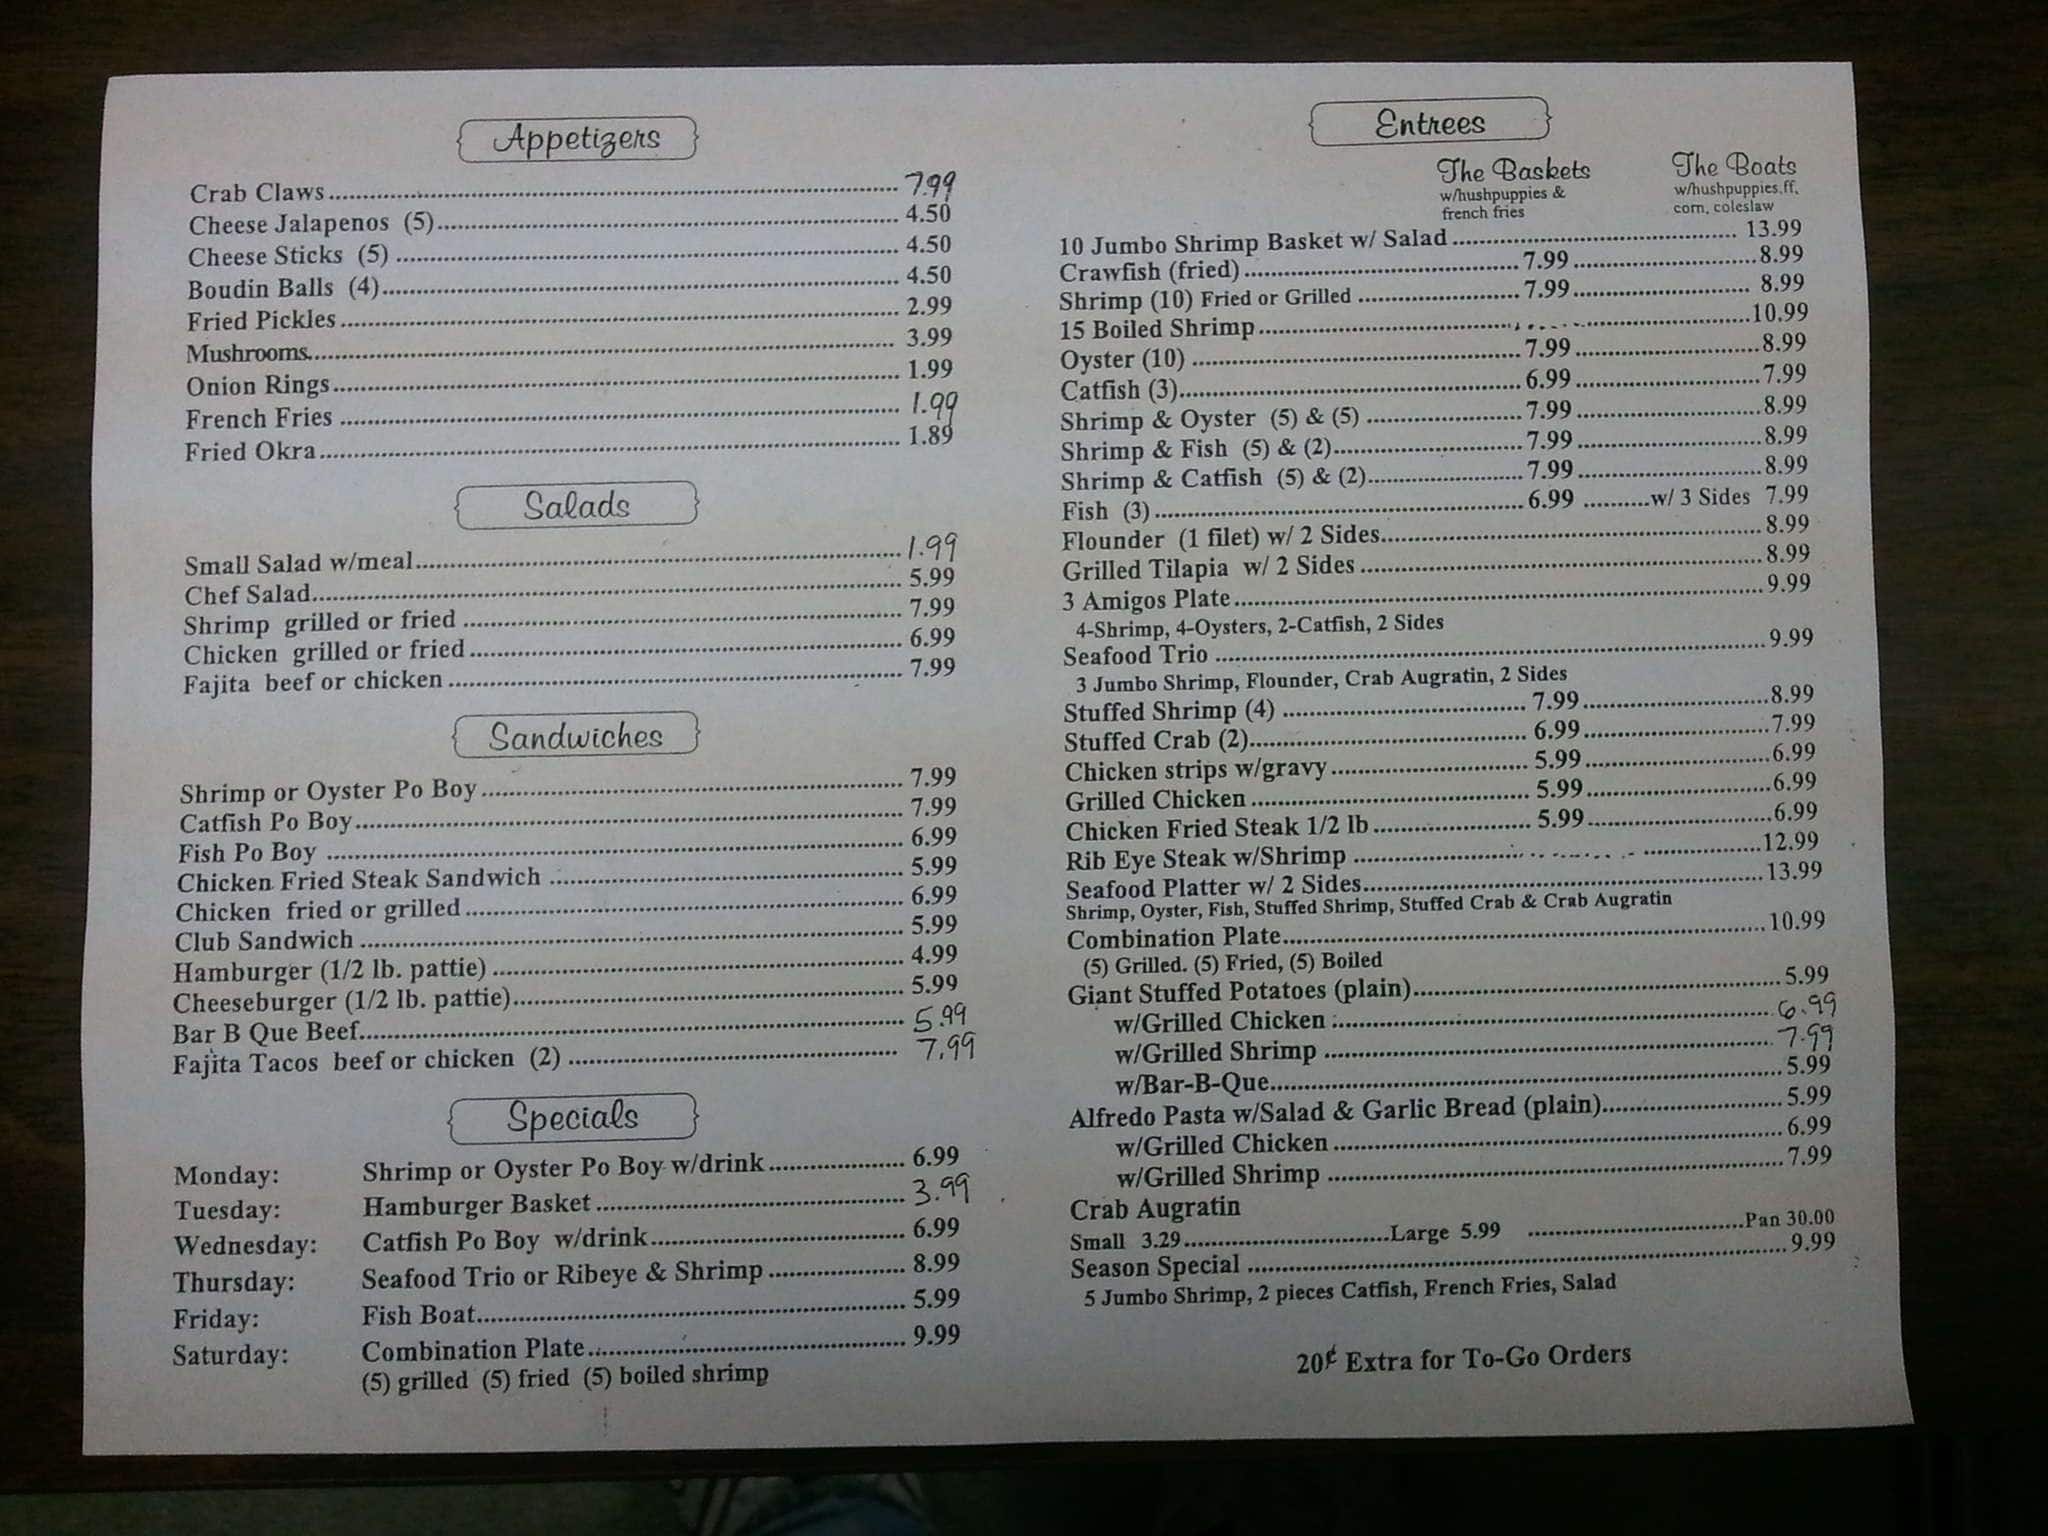 Appetizers
Crab Claws 7.99
Cheese Jalapenos (5) 4.50
Cheese Sticks (5) 4.50
Boudin Balls (4) 4.50
Fried Pickles 2.99
Mushrooms 3.99
Onion Rings 1.99
French Fries 1.99
Fried Okra 1.89
Salads
Small Salad w/meal 1.99
Chef Salad 5.99
Shrimp grilled or fried 7.99
Chicken grilled or fried 6.99
Fajita beef or chicken 7.99
Sandwiches
Shrimp or Oyster Po Boy 7.99
Catfish Po Boy 7.99
Fish Po Boy 6.99
Chicken Fried Steak Sandwich 5.99
Chicken fried or grilled 6.99
Club Sandwich 5.99
Hamburger (1/2 lb. pattie) 4.99
Cheeseburger (1/2 lb. pattie) 5.99
Bar B Que Beef 5.99
Fajita Tacos beef or chicken (2) 7.99
Specials
Monday: Shrimp or Oyster Po Boy w/drink 6.99
Tuesday: Hamburger Basket 3.99
Wednesday: Catfish Po Boy w/drink 6.99
Thursday: Seafood Trio or Ribeye & Shrimp 8.99
Friday: Fish Boat 5.99
Saturday: Combination Plate 9.99
(5) grilled (5) fried (5) boiled shrimp
Entrees
The Baskets The Boats
w/hushpuppies & w/hushpuppies,ff,
french fries corn, coleslaw
10 Jumbo Shrimp Basket w/ Salad 13.99
Crawfish (fried) 7.99 8.99
Shrimp (10) Fried or Grilled 7.99 8.99
15 Boiled Shrimp 10.99
Oyster (10) 7.99 8.99
Catfish (3) 6.99 7.99
Shrimp & Oyster (5) & (5) 7.99 8.99
Shrimp & Fish (5) & (2) 7.99 8.99
Shrimp & Catfish (5) & (2) 7.99 8.99
Fish (3) 6.99 w/ 3 Sides 7.99
Flounder (1 filet) w/ 2 Sides 8.99
Grilled Tilapia w/ 2 Sides 8.99
3 Amigos Plate 9.99
4-Shrimp, 4-Oysters, 2-Catfish, 2 Sides
Seafood Trio 9.99
3 Jumbo Shrimp, Flounder, Crab Augratin, 2 Sides
Stuffed Shrimp (4) 7.99 8.99
Stuffed Crab (2) 6.99 7.99
Chicken strips w/gravy 5.99 6.99
Grilled Chicken 5.99 6.99
Chicken Fried Steak 1/2 lb 5.99 6.99
Rib Eye Steak w/Shrimp 12.99
Seafood Platter w/ 2 Sides 13.99
Shrimp, Oyster, Fish, Stuffed Shrimp, Stuffed Crab & Crab Augratin
Combination Plate 10.99
(5) Grilled. (5) Fried, (5) Boiled
Giant Stuffed Potatoes (plain) 5.99
w/Grilled Chicken 6.99
w/Grilled Shrimp 7.99
w/Bar-B-Que 5.99
Alfredo Pasta w/Salad & Garlic Bread (plain) 5.99
w/Grilled Chicken 6.99
w/Grilled Shrimp 7.99
Crab Augratin
Small 3.29 Large 5.99 Pan 30.00
Season Special 9.99
5 Jumbo Shrimp, 2 pieces Catfish, French Fries, Salad
20¢ Extra for To-Go Orders